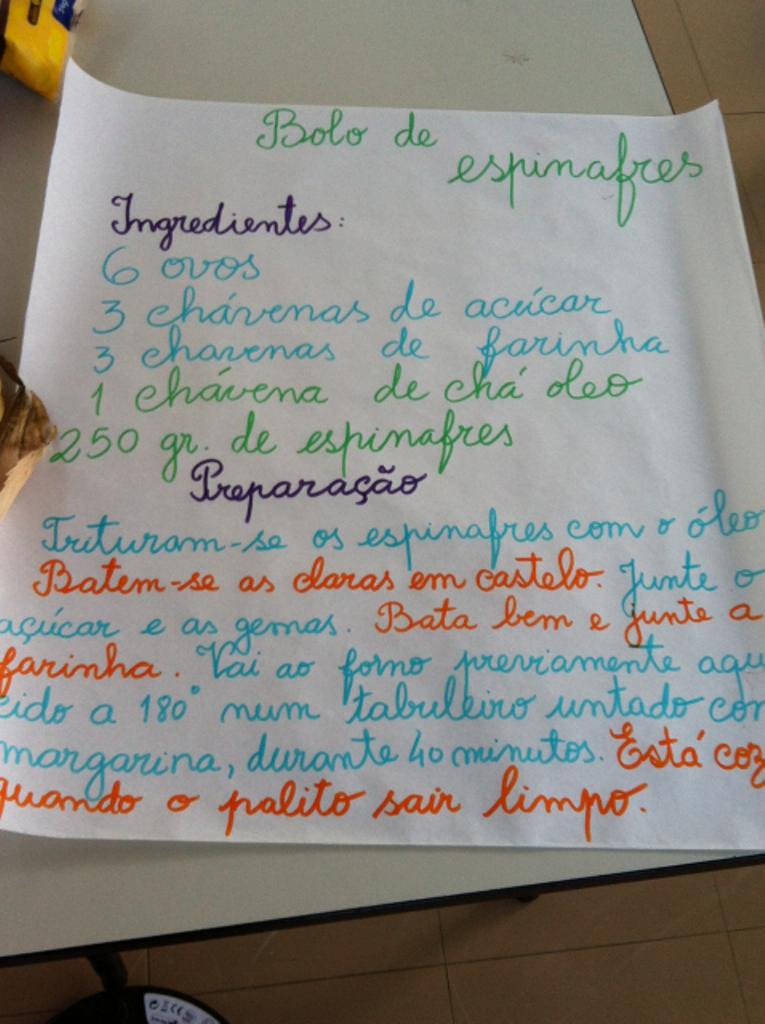 Bolo de
espinafres
Ingredientes:
6 ovos
3 chávenas de acúcar
3 chavenas de farinha
1 chávena de chá oleo
250 gr. de espinafres
Preparação
Trituram-se os espinafres com o óleo
Batem-se as claras em castelo. Junte o
açúcar e as gemas. Bata bem e junte a
farinha. Vai ao forno previamente aque
cido a 180° num tabuleiro untado com
margarina, durante 40 minutos. Está coz
quando o palito sair limpo.